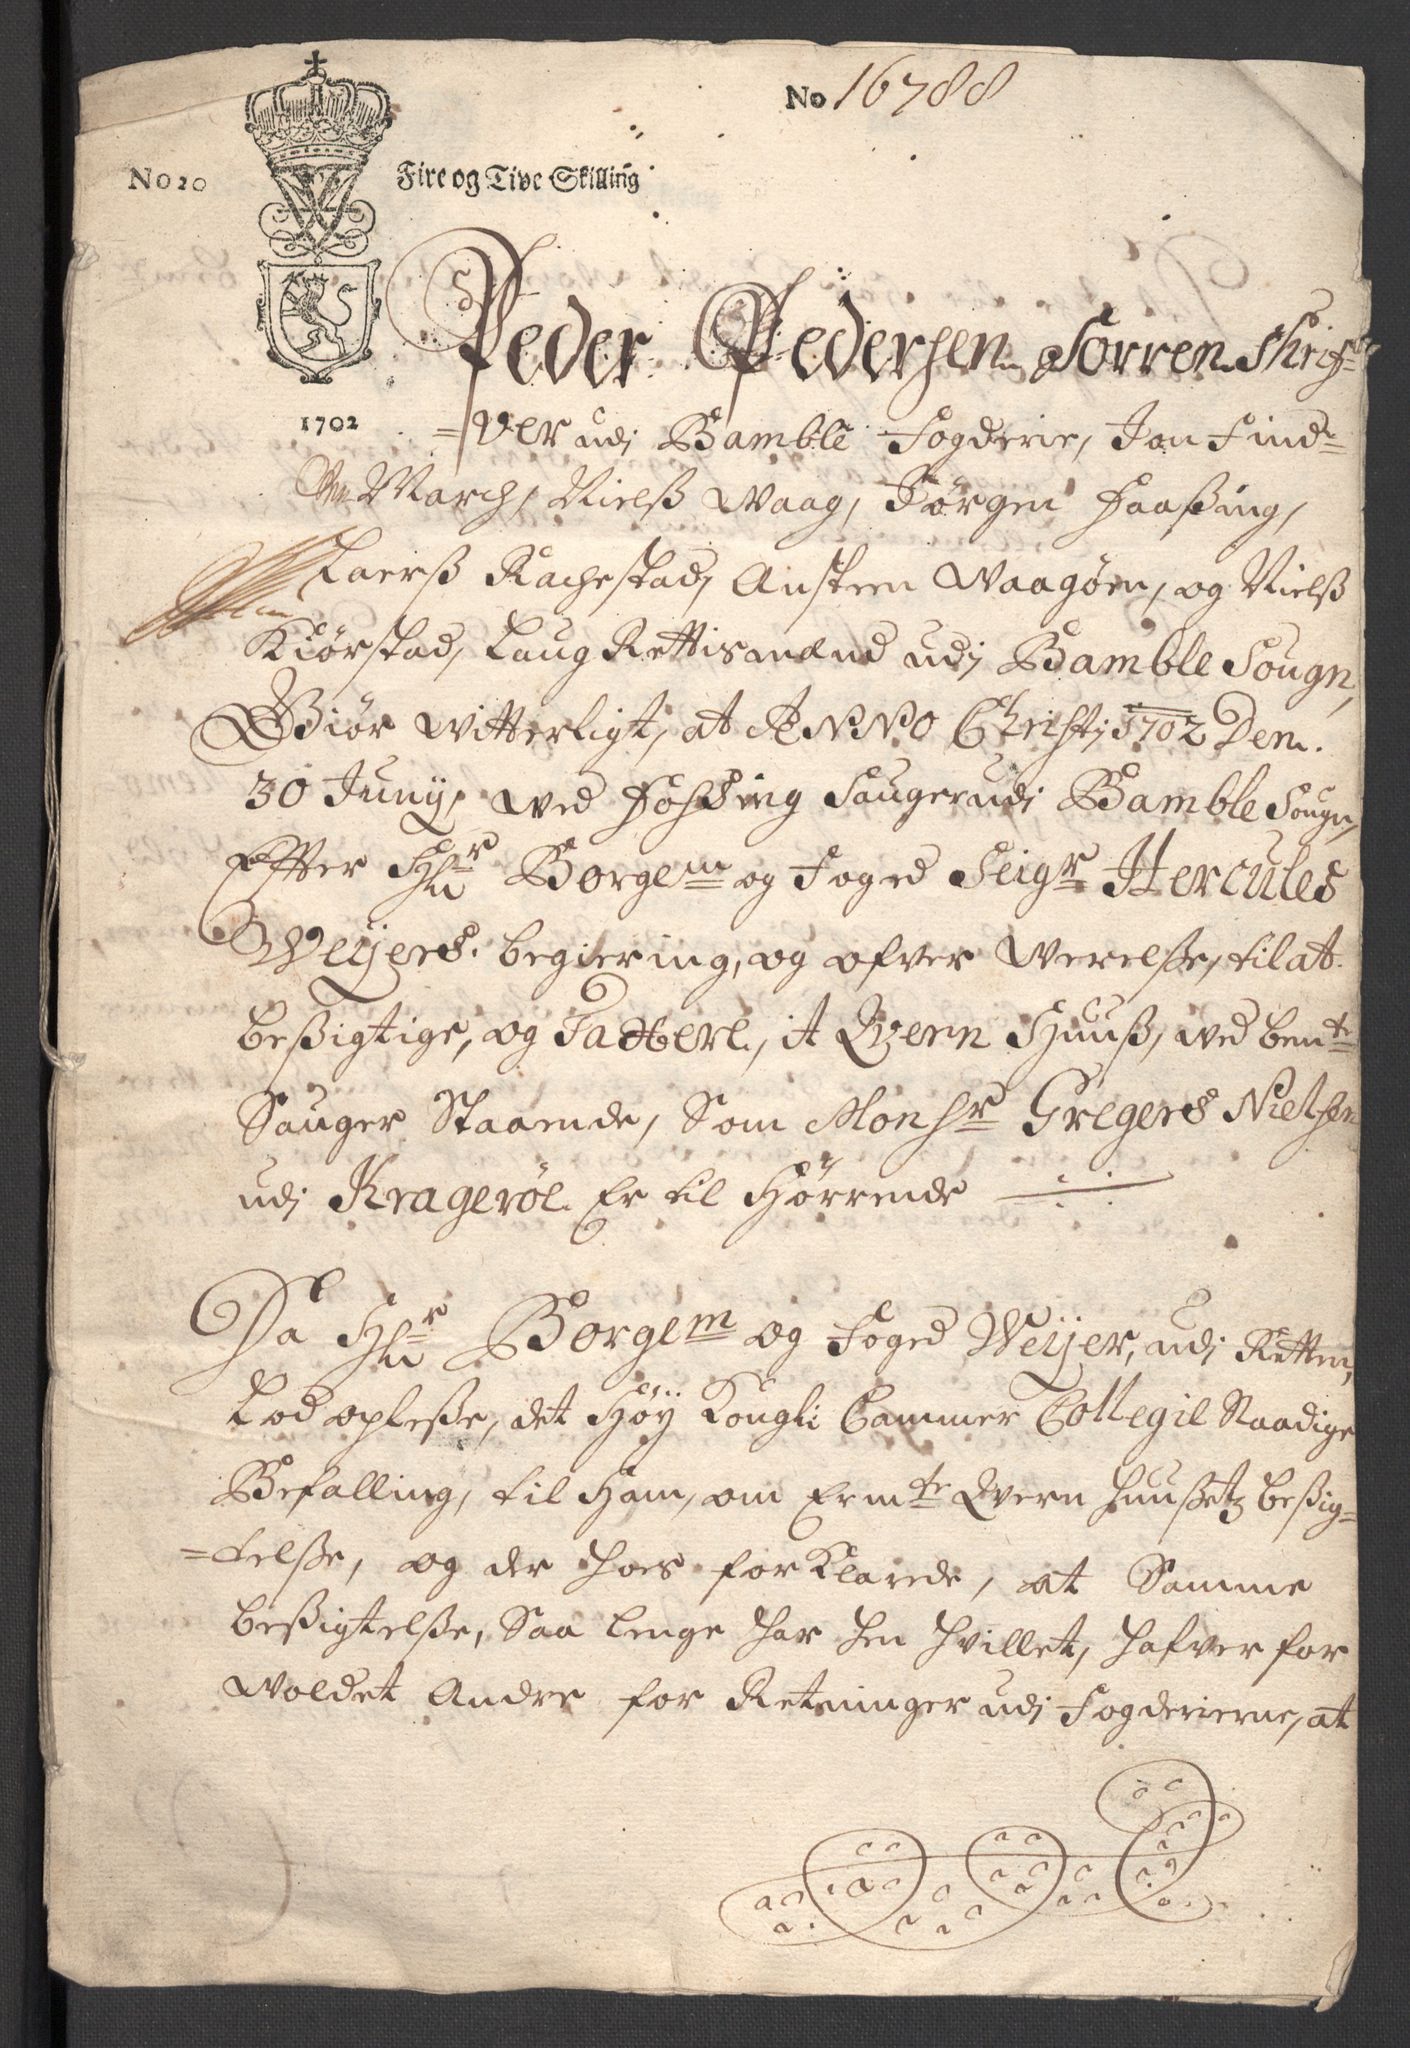 No 16788
No 20 Fire og Tive Skilling
1702
Peder Pedersen Sorren Skrif=
=ver udj Bamble Fogderie, Jon Find=
March, Nielß Waag, Jørgen Haaßing,
Laerß Rachestad, Austeen Waagøen, og Nielß
Kiørstad, Laug Rettismænd udj Bamble Sougn,
Giør Witterligt, at ANNO Christj 1702 Den.
30 Junij, Wed Sauger udj Bamble Sougn,
Effter Hr Borgem og Foged Seigr Hercules
Weijers. begiering, og ofver Werelße, til at
beßigtige, og Taxere, it Qvern Huuß, wed bemte
Sauger Staaende, Som Monsr Gregers Nielsen
udj Kragerøe. Er til Hørrende
Da Hr Borgem og Foged Weijer, udj Retten,
Lod opleße, det Høy Kongli Cammer Collegij Naadige
Befalling, til Ham, om Ermte Qvern Huußetz beßig=
=telße, og der hoes forKlarede, at Samme
beßigtelße, Saa lenge har hen hvillet, hafver for
woldet Andre for Retninger udj Fogderierne, at